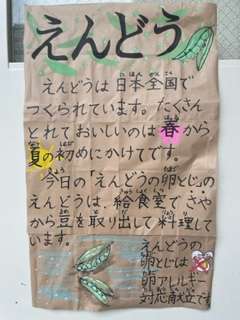 えんどう
えんどうは日本全国で
つくられています。たくさん
とれておいしいのは春から
夏の初めにかけてです。
今日の「えんどうの卵とじ」の
えんどうは、給食室でさや
から豆を取り出して料理して
います。
えんどうの
卵とじは
卵アレルギー
対応献立です